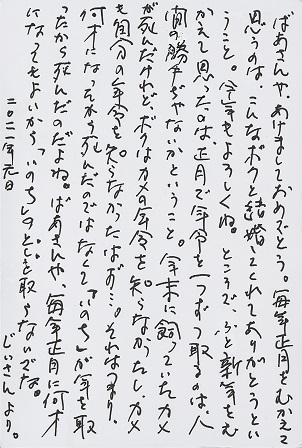 ばあさんや、あけましておめでとう。毎年正月をむかえて
思うのは、こんなボクと結婚してくれてありがとうとい
うこと。今年もよろしくね。ところで、ふと新年をむ
かえて思ったのは、正月で年令を一つずつ取るのは、人
間の勝手ぢゃないかということ。年末に飼っていたカメ
が死んだけれど、ボクはカメの年令を知らなかったし、カメ
も自分の年令を知らなかったはず…。それはつまり、
何才になったから死んだのではなくて「いのち」が年を取
ったから死んだのだよね。ばあさんや、毎年正月に何才
になってもよいから「いのち」のとしを取らないでな。
二〇二一年元日
じいさんより。